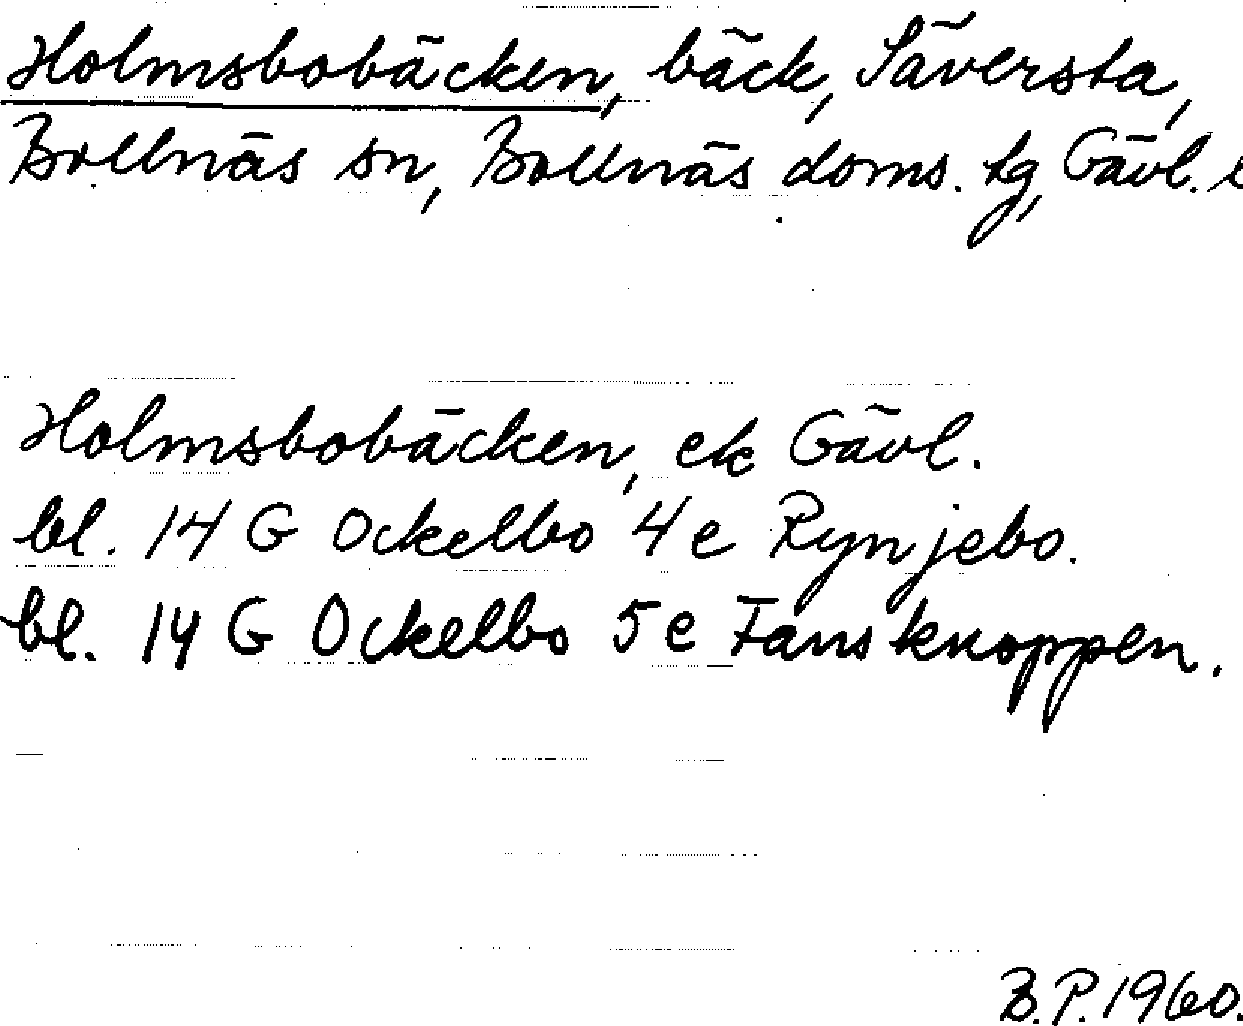 Holmsbobäcken, bäck, Säversta,
Bollnäs sn, Bollnäs doms. tg, Gävl. l
Holmsbobäcken, ek Gävl.
bl. 14 G Ockelbo 4 e Rynjebo.
bl. 14 G Ockelbo 5 e Fansknoppen.
B.P. 1960.